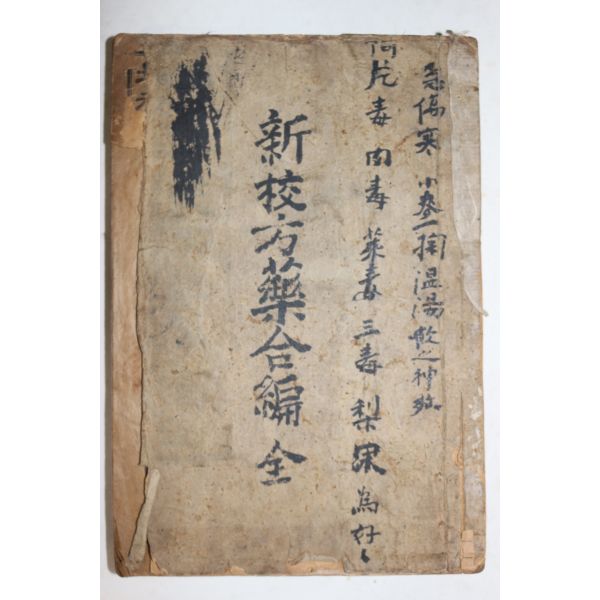 急傷寒 小麥一掬 温湯飲之神效
阿片毒 肉毒 菜毒 三毒 梨果 為好
新校方藥合編 全